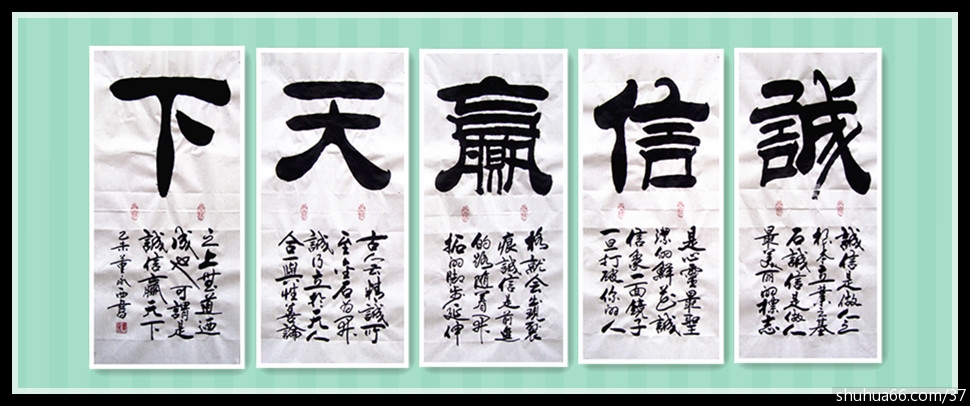 誠
信
贏
天
下
誠信是做人之
根本立業之基
石誠信是做人
最美丽的標志
是心靈最聖
潔的鮮花誠
信是一面鏡子
一旦打破你的人
格就会出現裂
痕誠信是前進
的路隨着開
拓的脚步延伸
古人云精誠所
至金石為開
誠立於天人
合一與性善論
之上無道
也可謂是
誠信贏天下
乙未董永西書
shuhua66.com/37